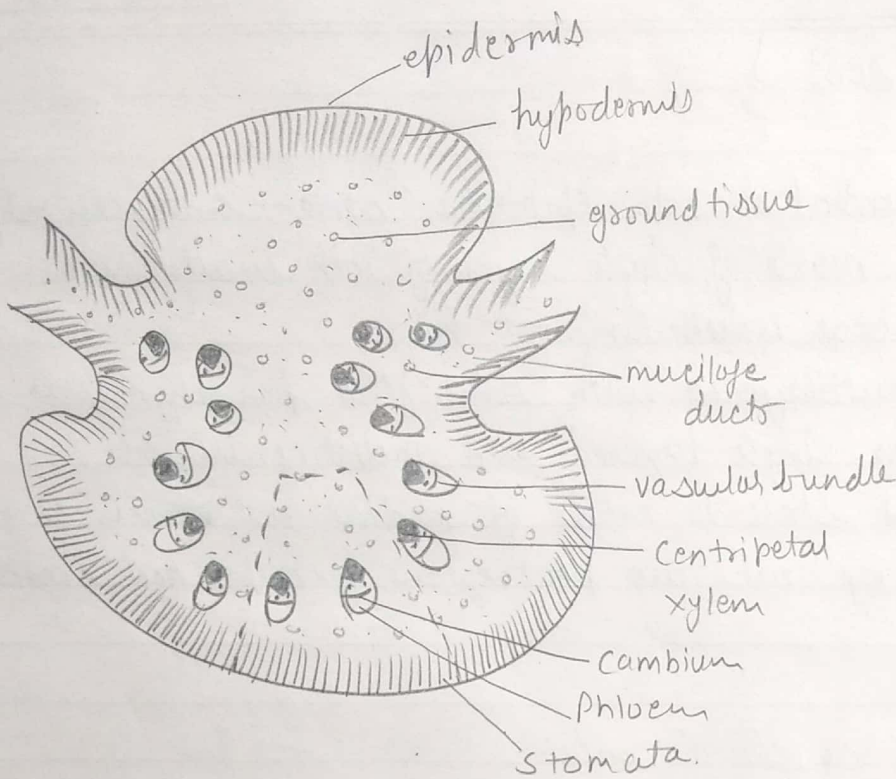 epidermis
hypodermis
ground tissue
mucilage
ducts
vascular bundle
Centripetal
xylem
Cambium
Phloem
Stomata.